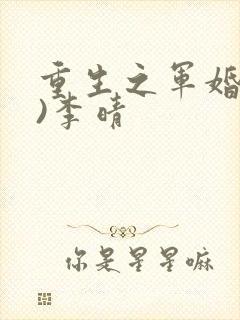 重生之军婚
)李晴
你是星星嘛